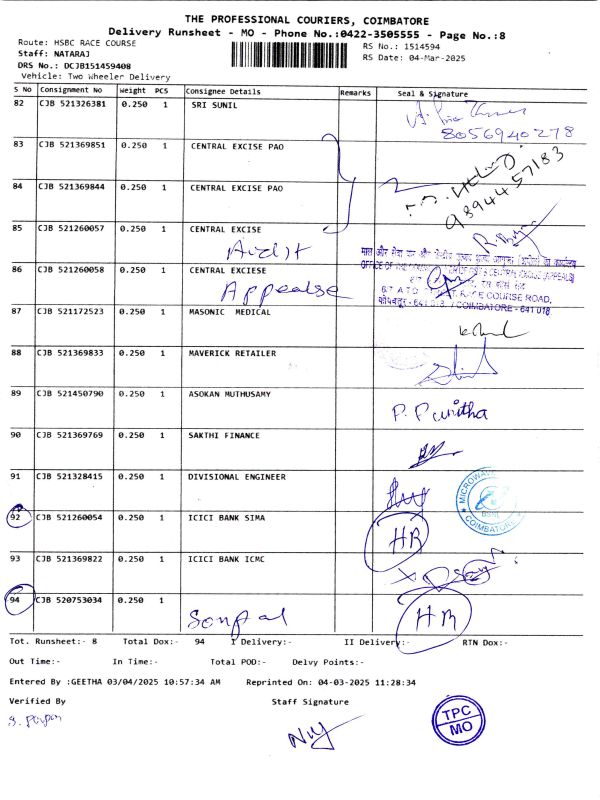 THE PROFESSIONAL COURIERS, COIMBATORE
Delivery Runsheet - MO - Phone No.:0422-3505555 - Page No.:8
Route: HSBC RACE COURSE
RS No.: 1514594
Staff: NATARAJ
RS Date: 04-Mar-2025
DRS No.: DCJB151459408
Vehicle: Two Wheeler Delivery
S No Consignment No Weight PCS Consignee Details Remarks Seal & Signature
82 CJB 521326381 0.250 1 SRI SUNIL
8056940278
83 CJB 521369851 0.250 1 CENTRAL EXCISE PAO
84 CJB 521369844 0.250 1 CENTRAL EXCISE PAO
9894457183
85 CJB 521260057 0.250 1 CENTRAL EXCISE
Audit
86 CJB 521260058 0.250 1 CENTRAL EXCIESE
Appealse
RACE COURSE ROAD,
COIMBATORE - 641 018
87 CJB 521172523 0.250 1 MASONIC MEDICAL
88 CJB 521369833 0.250 1 MAVERICK RETAILER
89 CJB 521450790 0.250 1 ASOKAN MUTHUSAMY
P. Punitha
90 CJB 521369769 0.250 1 SAKTHI FINANCE
91 CJB 521328415 0.250 1 DIVISIONAL ENGINEER
MICROWAVE
BSNL
COIMBATORE
92 CJB 521260054 0.250 1 ICICI BANK SIMA
HR
93 CJB 521369822 0.250 1 ICICI BANK ICMC
94 CJB 520753034 0.250 1
HR
Tot. Runsheet:- 8 Total Dox:- 94 I Delivery:- II Delivery:- RTN Dox:-
Out Time:- In Time:- Total POD:- Delvy Points:-
Entered By :GEETHA 03/04/2025 10:57:34 AM Reprinted On: 04-03-2025 11:28:34
Verified By Staff Signature
TPC
MO